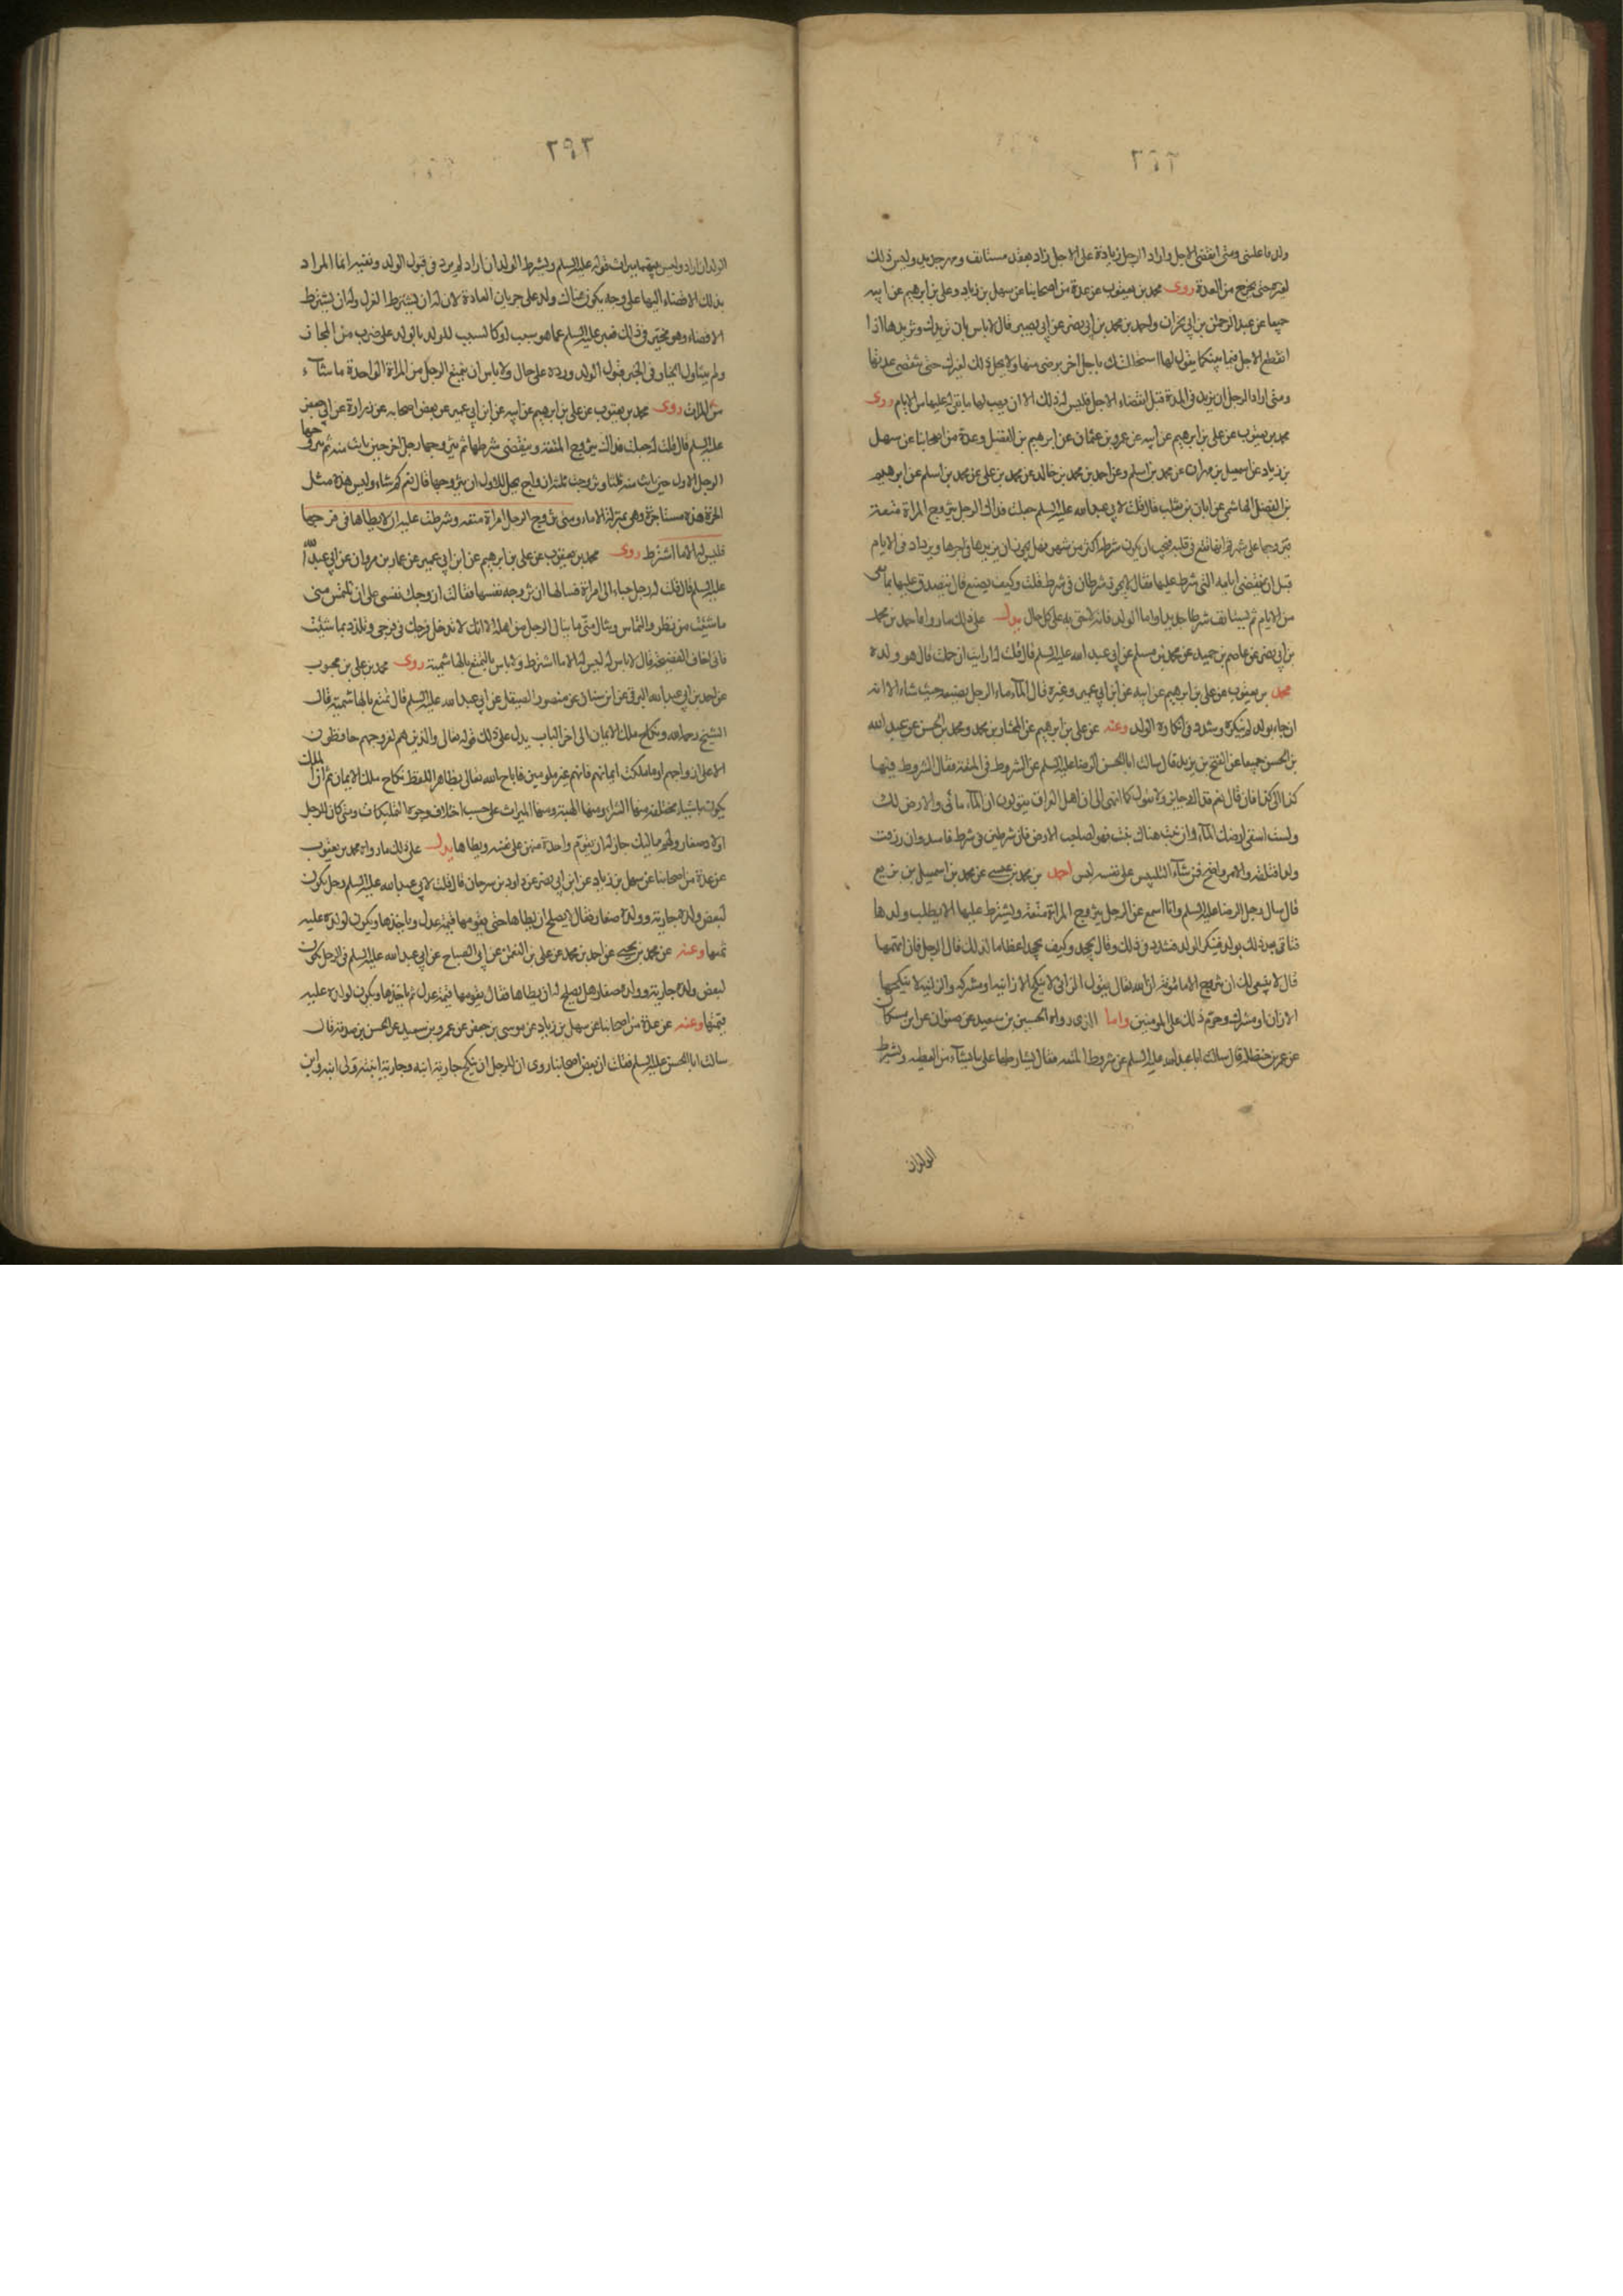 ٢٩٢
ولد ما علمتنى ومتى انقضى الاجل واراد الرجل زيادة على الاجل زاد بعقد مستانف ومهر جديد وليس ذلك
لغيره حتى يخرج من العدة روى محمد بن يعقوب عن عدة من اصحابنا عن سهل بن زياد وعلى بن ابرهيم عن ابيه
جميعا عن عبد الرحمن بن ابى نجران واحمد بن محمد بن ابى نصر عن ابى بصير قال لا باس بان تزيدك وتزيدها اذا
انقطع الاجل فيما بينكما يقول لها استحللتك باجل اخر برضى منها ولا يحل ذلك لغيرك حتى تنقضى عدتها
ومتى اراد الرجل ان يزيد فى المدة قبل انقضاء الاجل فليس له ذلك الا ان يهب لها ما بقى له عليها من الايام روى
محمد بن يعقوب عن على بن ابرهيم عن ابيه عن عمرو بن عثمان عن ابرهيم بن الفضل وعدة من اصحابنا عن سهل
بن زياد عن اسمعيل بن مهران عن محمد بن اسلم وعن احمد بن محمد بن خالد عن محمد بن على عن محمد بن اسلم عن ابرهيم
بن الفضل الهاشمى عن ابان بن تغلب قال قلت لابى عبد الله عليه السلم جعلت فداك الرجل يتزوج المراة متعة
فيتزوجها على شهر ثم انها تقع فى قلبه فيحب ان يكون شرطه اكثر من شهر فهل يجوز ان يزيدها فى اجرها ويزداد فى الايام
قبل ان تنقضى ايامه التى شرط عليها فقال لا يجوز شرطان فى شرط قلت وكيف يصنع قال يتصدق عليها بما بقى
من الايام ثم يستانف شرطا جديدا واما الولد فانه لاحق به على كل حال يدل على ذلك ما رواه احمد بن محمد
بن ابى نصر عن عاصم بن حميد عن محمد بن مسلم عن ابى عبد الله عليه السلم قال قلت له ارايت ان حبلت قال هو ولده
محمد بن يعقوب عن على بن ابرهيم عن ابيه عن ابن ابى عمير وغيره قال الماء ماء الرجل يضعه حيث شاء الا انه
ان جاء بولد لم ينكره وشدد فى انكاره الولد وعنه عن على بن ابرهيم عن المختار بن محمد ومحمد بن الحسن عن عبد الله
بن الحسن جميعا عن الفتح بن يزيد قال سالت ابا الحسن الرضا عليه السلم عن الشروط فى المتعة فقال الشروط فيها
كذا الى كذا فان قال نعم فذاك له جايز ولا تقول كما انهى الى ان اهل العراق يقولون ان الماء مائى والارض لك
ولست اسقى ارضك الماء وان نبت هناك نبت فهو لصاحب الارض فان شرطين فى شرط فاسد وان رزقت
ولدا قبله والامر واضح فمن شاء التلبيس على نفسه لبس احمد بن محمد بن عيسى عن محمد بن اسمعيل بن بزيع
قال سال رجل الرضا عليه السلم وانا اسمع عن الرجل يتزوج المراة متعة ويشترط عليها الا يطلب ولدها
فتاتى بعد ذلك بولد فينكر الولد فشدد فى ذلك وقال يجحد وكيف يجحد اعظاما لذلك قال الرجل فان اتهمها
قال لا ينبغى لك ان تتزوج الا مامونة ان الله تعالى يقول الزانى لا ينكح الا زانية او مشركة والزانية لا ينكحها
الا زان او مشرك وحرم ذلك على المومنين واما الذى رواه الحسين بن سعيد عن صفوان عن ابن مسكان
عن عمر بن حنظلة قال سالت ابا عبد الله عليه السلم عن شروط المتعة فقال يشارطها على ما يشاء من العطية ويشترط
الولد ان
٢٩٣
الولد ان اراد وليس بينهما ميراث قوله عليه السلم ويشترط الولد ان اراد لم يرد فى قبول الولد ونفيه انما المراد
بذلك الافضاء اليها على وجه يكون هناك ولد على جريان العادة لان له ان يشترط العزل وله ان يشترط
الافضاء وهو مخير فى ذلك فعبر عليه السلم عما هو سبب او كالسبب للولد بالولد على ضرب من المجاز
ولم يتناول التخيار فى الخبر قبول الولد ورده على حال ولا باس ان يتمتع الرجل من المراة الواحدة ما شاء
من المرات روى محمد بن يعقوب عن على بن ابرهيم عن ابيه عن ابن ابى عمير عن بعض اصحابه عن زرارة عن ابى جعفر
عليه السلم قال قلت له جعلت فداك يتزوج المتعة وينقضى شرطها ثم يتزوجها رجل اخر حين بانت منه ثم يتزوجها
الرجل الاول حين بانت منه ثلثا وتزوجت ثلثة ازواج يحل للاول ان يتزوجها قال نعم كم شاء وليس هذه مثل
الحرة هذه مستاجرة وهى بمنزلة الاماء ومتى تزوج الرجل امراة متعة وشرطت عليه ان لا يطاها فى فرجها
فليس له الا ما اشترط روى محمد بن يعقوب عن على بن ابرهيم عن ابن ابى عمير عن عمار بن مروان عن ابى عبد الله
عليه السلم قال قلت له رجل جاء الى امراة فسالها ان تزوجه نفسها فقالت ازوجك نفسى على ان تلتمس منى
ما شئت من نظر والتماس وتنال منى ما ينال الرجل من اهله الا انك لا تدخل فرجك فى فرجى وتلذذ بما شئت
فانى اخاف الفضيحة قال لا باس له ليس له الا ما اشترط ولا باس بالتمتع بالهاشمية روى محمد بن على بن محبوب
عن احمد بن ابى عبد الله البرقى عن ابن سنان عن منصور الصيقل عن ابى عبد الله عليه السلم قال تمتع بالهاشمية قال
الشيخ رحمه الله ونكاح ملك الايمان الى اخر الباب يدل على ذلك قوله تعالى والذين هم لفروجهم حافظون
الا على ازواجهم او ما ملكت ايمانهم فانهم غير ملومين فاباح الله تعالى بظاهر اللفظ نكاح ملك الايمان ثم ان الملك
يكون باشياء مختلفة منها الشراء ومنها الهبة ومنها الميراث على حسب اختلاف وجوه التمليكات ومتى كان للرجل
اولاد صغار ولهم مماليك جاز له ان يقوم واحدة منهن على نفسه ويطاها يدل على ذلك ما رواه محمد بن يعقوب
عن عدة من اصحابنا عن سهل بن زياد عن ابن ابى نصر عن داود بن سرحان قال قلت لابى عبد الله عليه السلم رجل يكون
لبعض ولده جارية وولده صغار فقال لا يصلح ان يطاها حتى يقومها قيمة عدل وياخذها ويكون لولده عليه
ثمنها وعنه عن محمد بن يحيى عن احمد بن محمد عن على بن النعمن عن ابى الصباح عن ابى عبد الله عليه السلم فى الرجل يكون
لبعض ولده جارية وولده صغار هل يصلح له ان يطاها فقال يقومها قيمة عدل ثم ياخذها ويكون لولده عليه
قيمتها وعنه عن عدة من اصحابنا عن سهل بن زياد عن موسى بن جعفر عن عمرو بن سعيد عن الحسن بن صدقة قال
سالت ابا الحسن عليه السلم فقلت ان بعض اصحابنا روى ان للرجل ان ينكح جارية ابنه وجارية ابنته ولى ابنة وابن